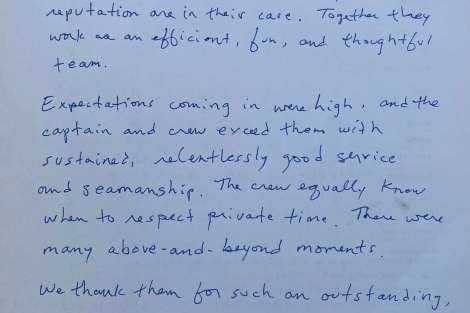 reputation are in their care. Together they
work as an efficient, fun, and thoughtful
team.
Expectations coming in were high, and the
captain and crew exceed them with
sustained, relentlessly good service
and seamanship. The crew equally know
when to respect private time. There were
many above-and-beyond moments.
We thank them for such an outstanding,